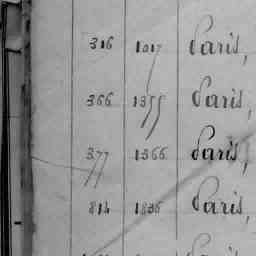 316 1017 Paris,
366 1355 Paris,
377 1366 Paris,
814 1836 Paris,